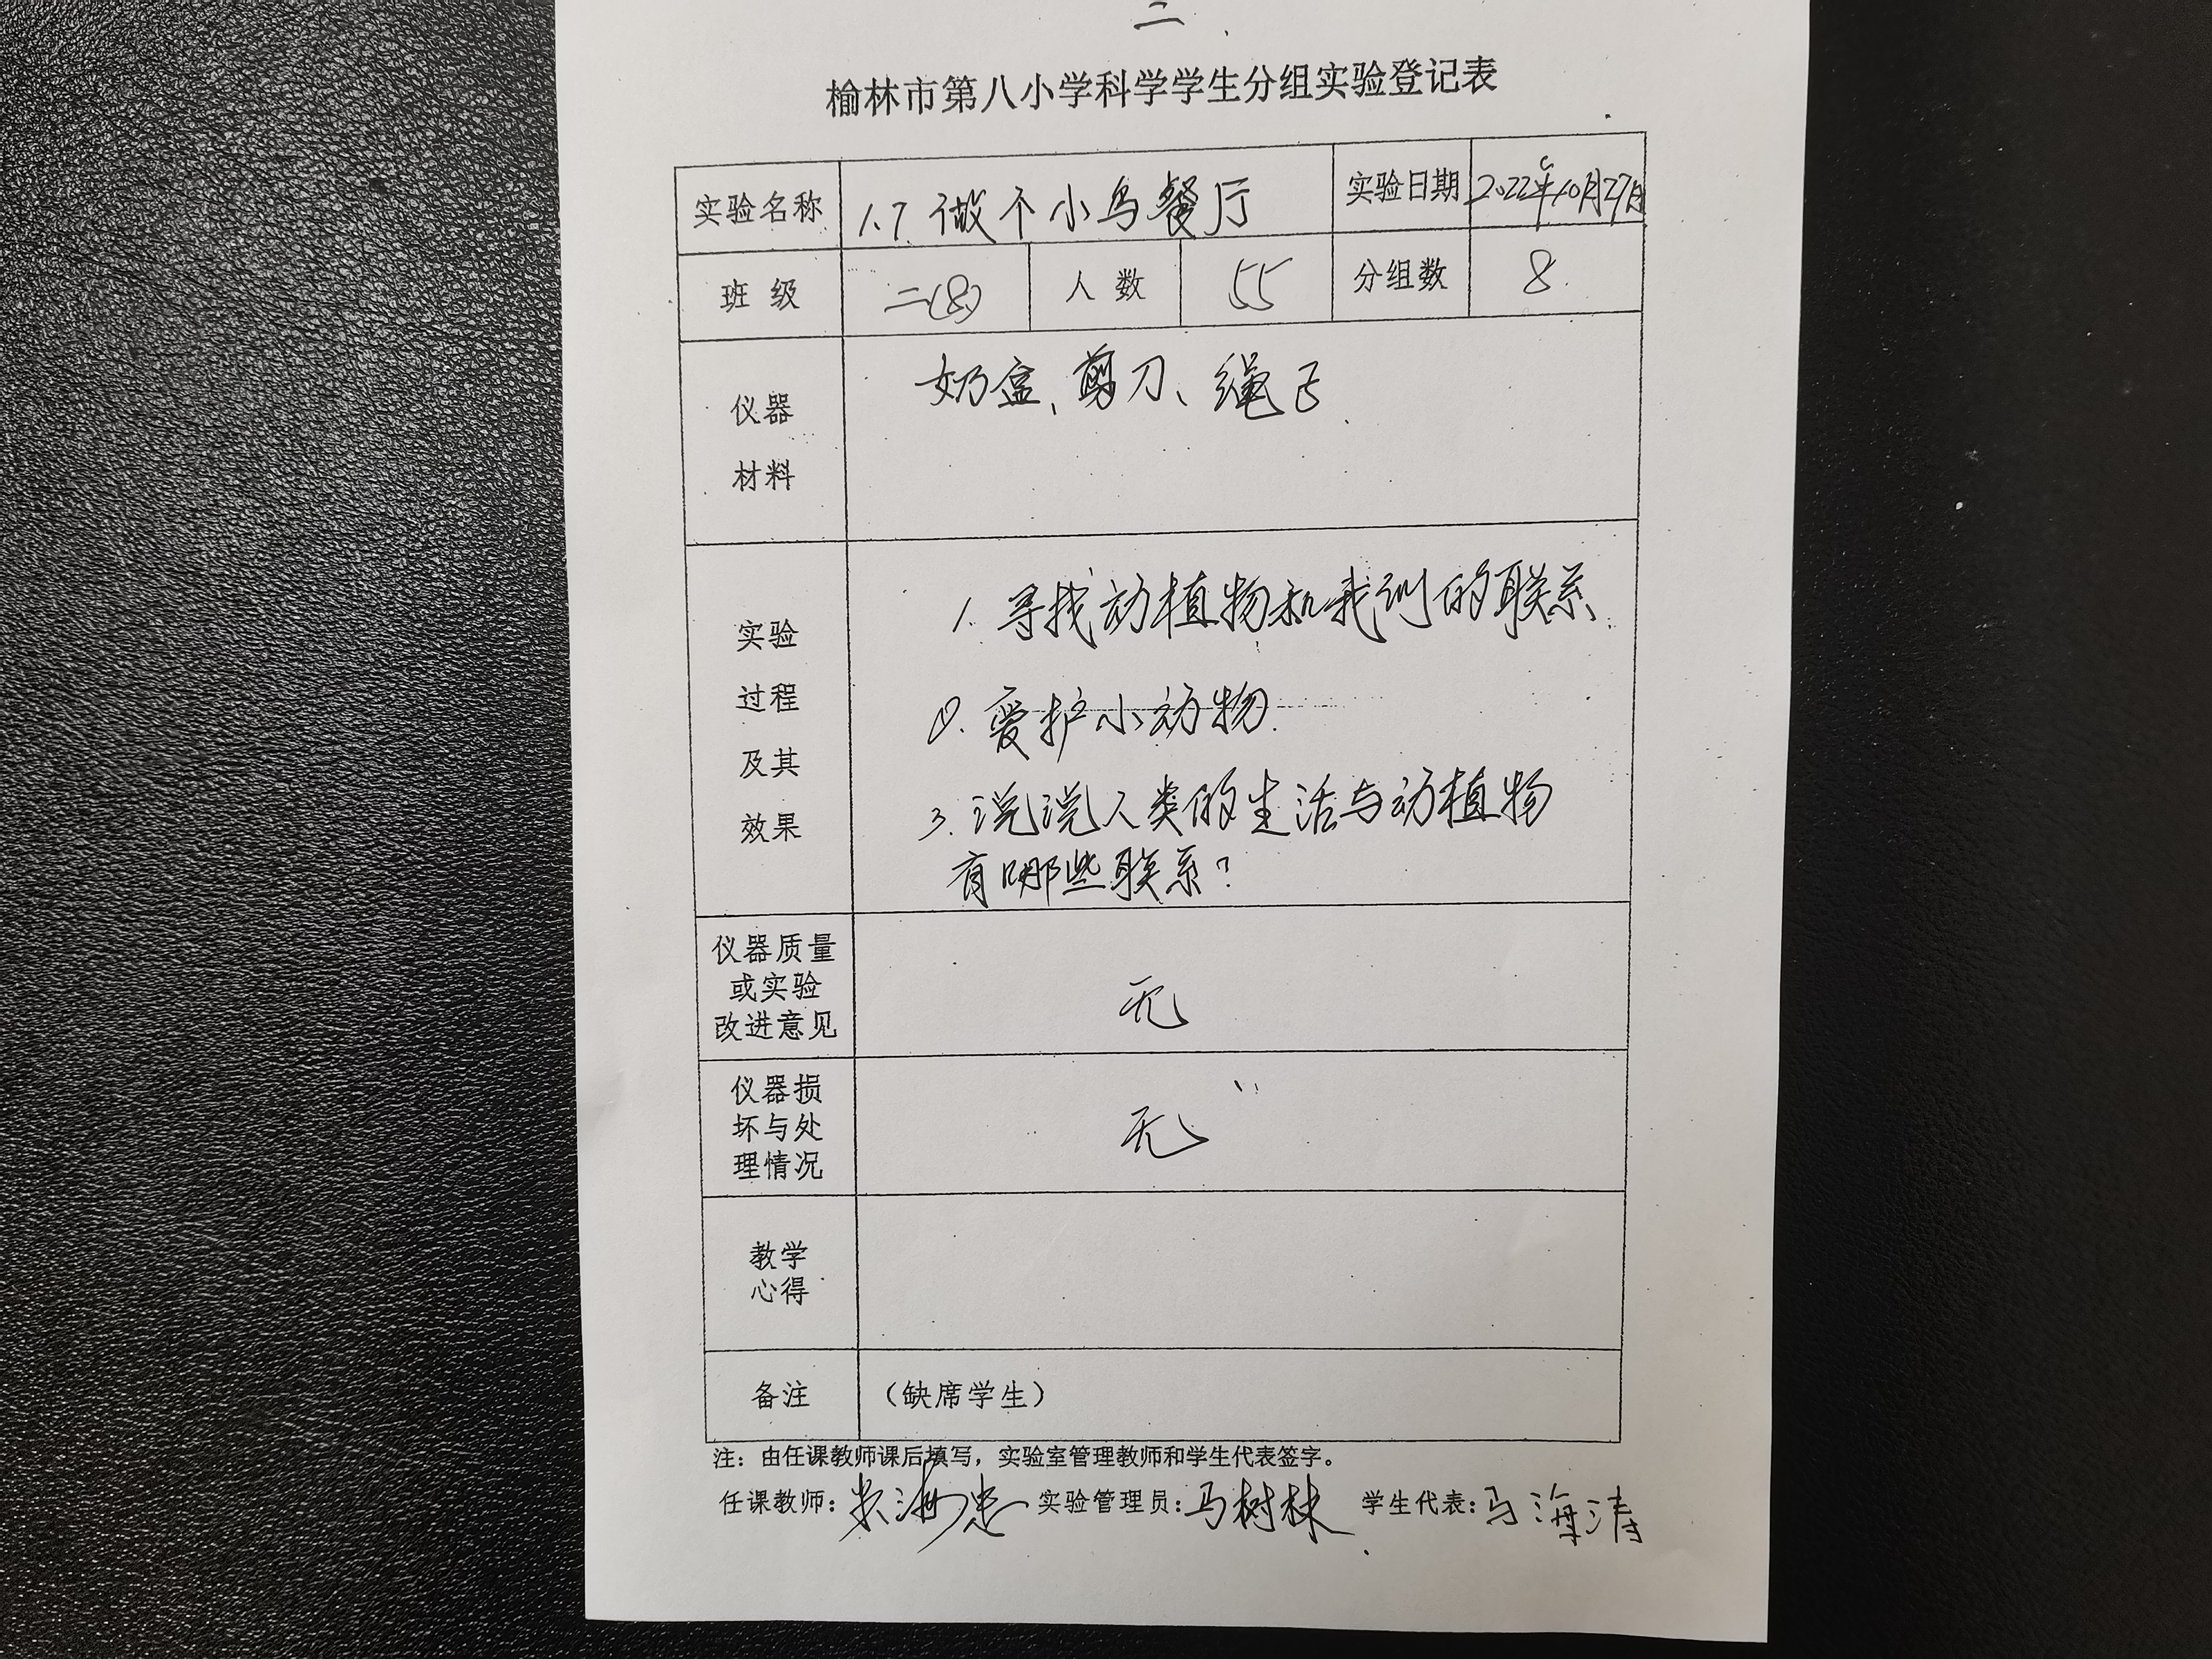 二
榆林市第八小学科学学生分组实验登记表
实验名称 1.7 做个小鸟餐厅 实验日期 2022年10月27日
班 级 二(8) 人 数 55 分组数 8
仪器
材料
奶盒、剪刀、绳子
实验
过程
及其
效果
1. 寻找动植物和我们的联系.
2. 爱护小动物.
3. 说说人类的生活与动植物
有哪些联系?
仪器质量
或实验
改进意见
无
仪器损
坏与处
理情况
无
教学
心得
备注 (缺席学生)
注：由任课教师课后填写，实验室管理教师和学生代表签字。
任课教师: 实验管理员:马树林 学生代表:马海涛